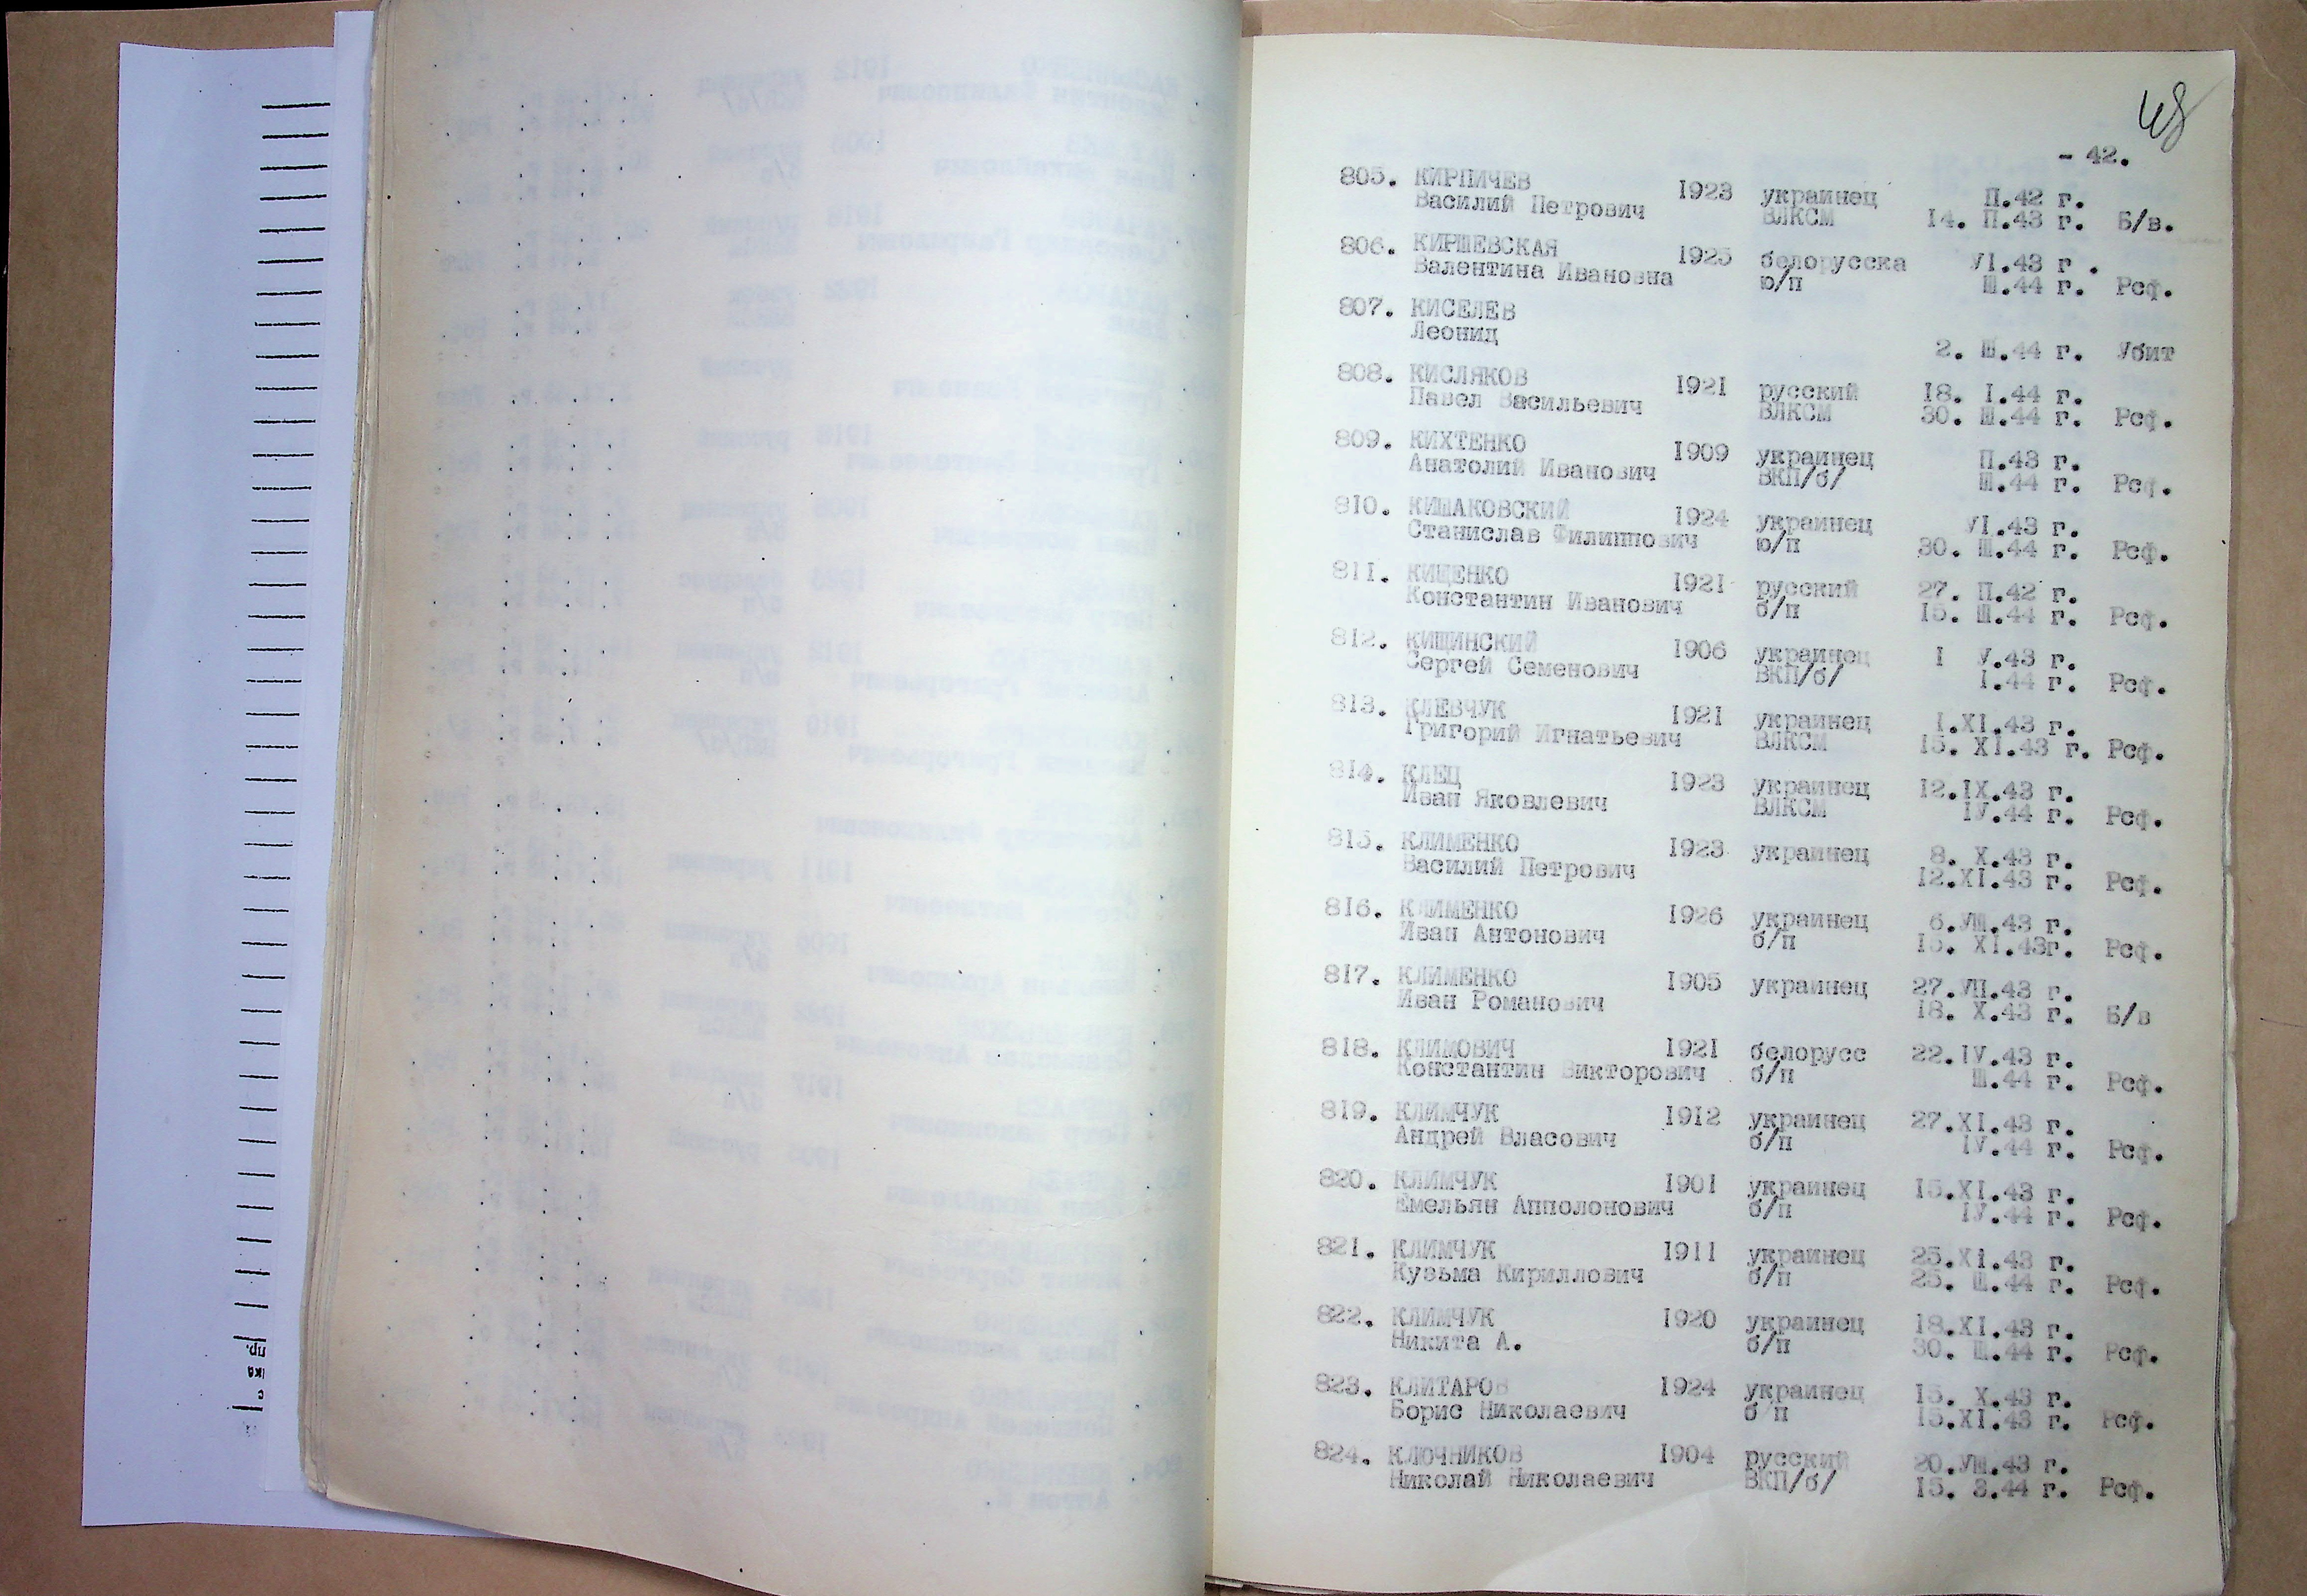 48
- 42.
805. КИРПИЧЕВ 1923 украинец П.42 г.
Василий Петрович ВЛКСМ 14. П.43 г. Б/в.
806. КИРШЕВСКАЯ 1925 белорусска УІ.43 г.
Валентина Ивановна ю/п Ш.44 г. Рсф.
807. КИСЕЛЕВ
Леонид
2. Ш.44 г. Убит
808. КИСЛЯКОВ 1921 русский 18. I.44 г.
Павел Васильевич ВЛКСМ 30. Ш.44 г. Рсф.
809. КИХТЕНКО 1909 украинец П.43 г.
Анатолий Иванович ВКП/б/ Ш.44 г. Рсф.
810. КИШАКОВСКИЙ 1924 украинец УІ.43 г.
Станислав Филиппович ю/п 30. Ш.44 г. Рсф.
811. КИЩЕНКО 1921 русский 27. П.42 г.
Константин Иванович б/п 15. Ш.44 г. Рсф.
812. КИЩИНСКИЙ 1906 украинец I У.43 г.
Сергей Семенович ВКП/б/ I.44 г. Рсф.
813. КЛЕВЧУК 1921 украинец I.XI.43 г.
Григорий Игнатьевич ВЛКСМ 15. XI.43 г. Рсф.
814. КЛЕЦ 1923 украинец 12.IX.43 г.
Иван Яковлевич ВЛКСМ ІУ.44 г. Рсф.
815. КЛИМЕНКО 1923 украинец 8. X.43 г.
Василий Петрович 12.XI.43 г. Рсф.
816. КЛИМЕНКО 1926 украинец 6.УШ.43 г.
Иван Антонович б/п 15. XI.43г. Рсф.
817. КЛИМЕНКО 1905 украинец 27.УП.43 г.
Иван Романович 18. X.43 г. Б/в
818. КЛИМОВИЧ 1921 белорусс 22.ІУ.43 г.
Константин Викторович б/п Ш.44 г. Рсф.
819. КЛИМЧУК 1912 украинец 27.XI.43 г.
Андрей Власович б/п ІУ.44 г. Рсф.
820. КЛИМЧУК 1901 украинец 15.XI.43 г.
Емельян Апполонович б/п ІУ.44 г. Рсф.
821. КЛИМЧУК 1911 украинец 25.XI.43 г.
Кузьма Кириллович б/п 25. Ш.44 г. Рсф.
822. КЛИМЧУК 1920 украинец 18.XI.43 г.
Никита А. б/п 30. Ш.44 г. Рсф.
823. КЛИТАРОВ 1924 украинец 15. X.43 г.
Борис Николаевич б/п 15.XI.43 г. Рсф.
824. КЛЮЧНИКОВ 1904 русский 20.УШ.43 г.
Николай Николаевич ВКП/б/ 15. 3.44 г. Рсф.